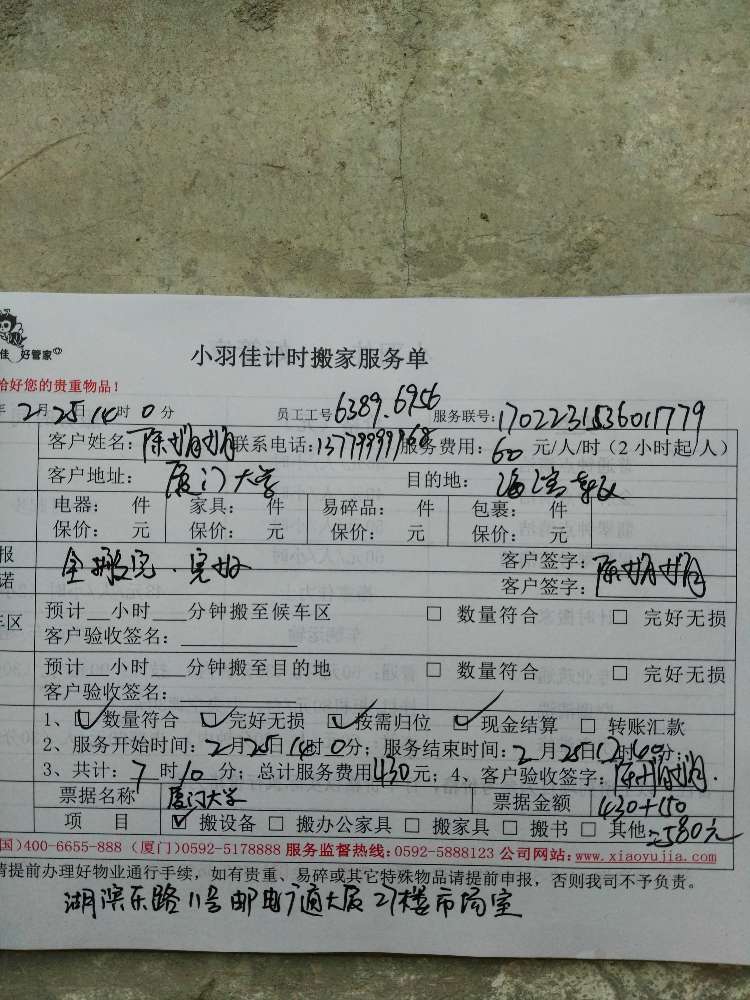 佳 好管家
小羽佳计时搬家服务单
给好您的贵重物品！
年 2月25日14时0分 员工工号6389.6956 服务联号:1702231536011779
客户姓名: 陈娟娟 联系电话: 服务费用: 60 元/人/时（2 小时起/人）
客户地址: 厦门大学 目的地:
电器: 件 家具: 件 易碎品: 件 包裹: 件
保价: 元 保价: 元 保价: 元 保价: 元
报 全搬完、完好 客户签字: 陈娟娟
诺 客户签字:
车区 预计__小时___分钟搬至候车区 □ 数量符合 □ 完好无损
客户验收签名:
预计__小时___分钟搬至目的地 □ 数量符合 □ 完好无损
客户验收签名:
1、☑数量符合 ☑完好无损 ☑按需归位 ☑现金结算 □ 转账汇款
2、服务开始时间: 2月25日14时0分；服务结束时间: 2月25日 时 分；
3、共计: 7 时10分；总计服务费用430元；4、客户签字: 陈娟娟.
票据名称 厦门大学 票据金额 430+150
项 目 ☑搬设备 □ 搬办公家具 □ 搬家具 □ 搬书 □ 其他=580元
国)400-6655-888 (厦门)0592-5178888 服务监督热线:0592-5888123 公司网站:www.xiaoyujia.com
请提前办理好物业通行手续，如有贵重、易碎或其它特殊物品请提前申报，否则我司不予负责。
湖滨东路11号邮电广通大厦27楼市场室